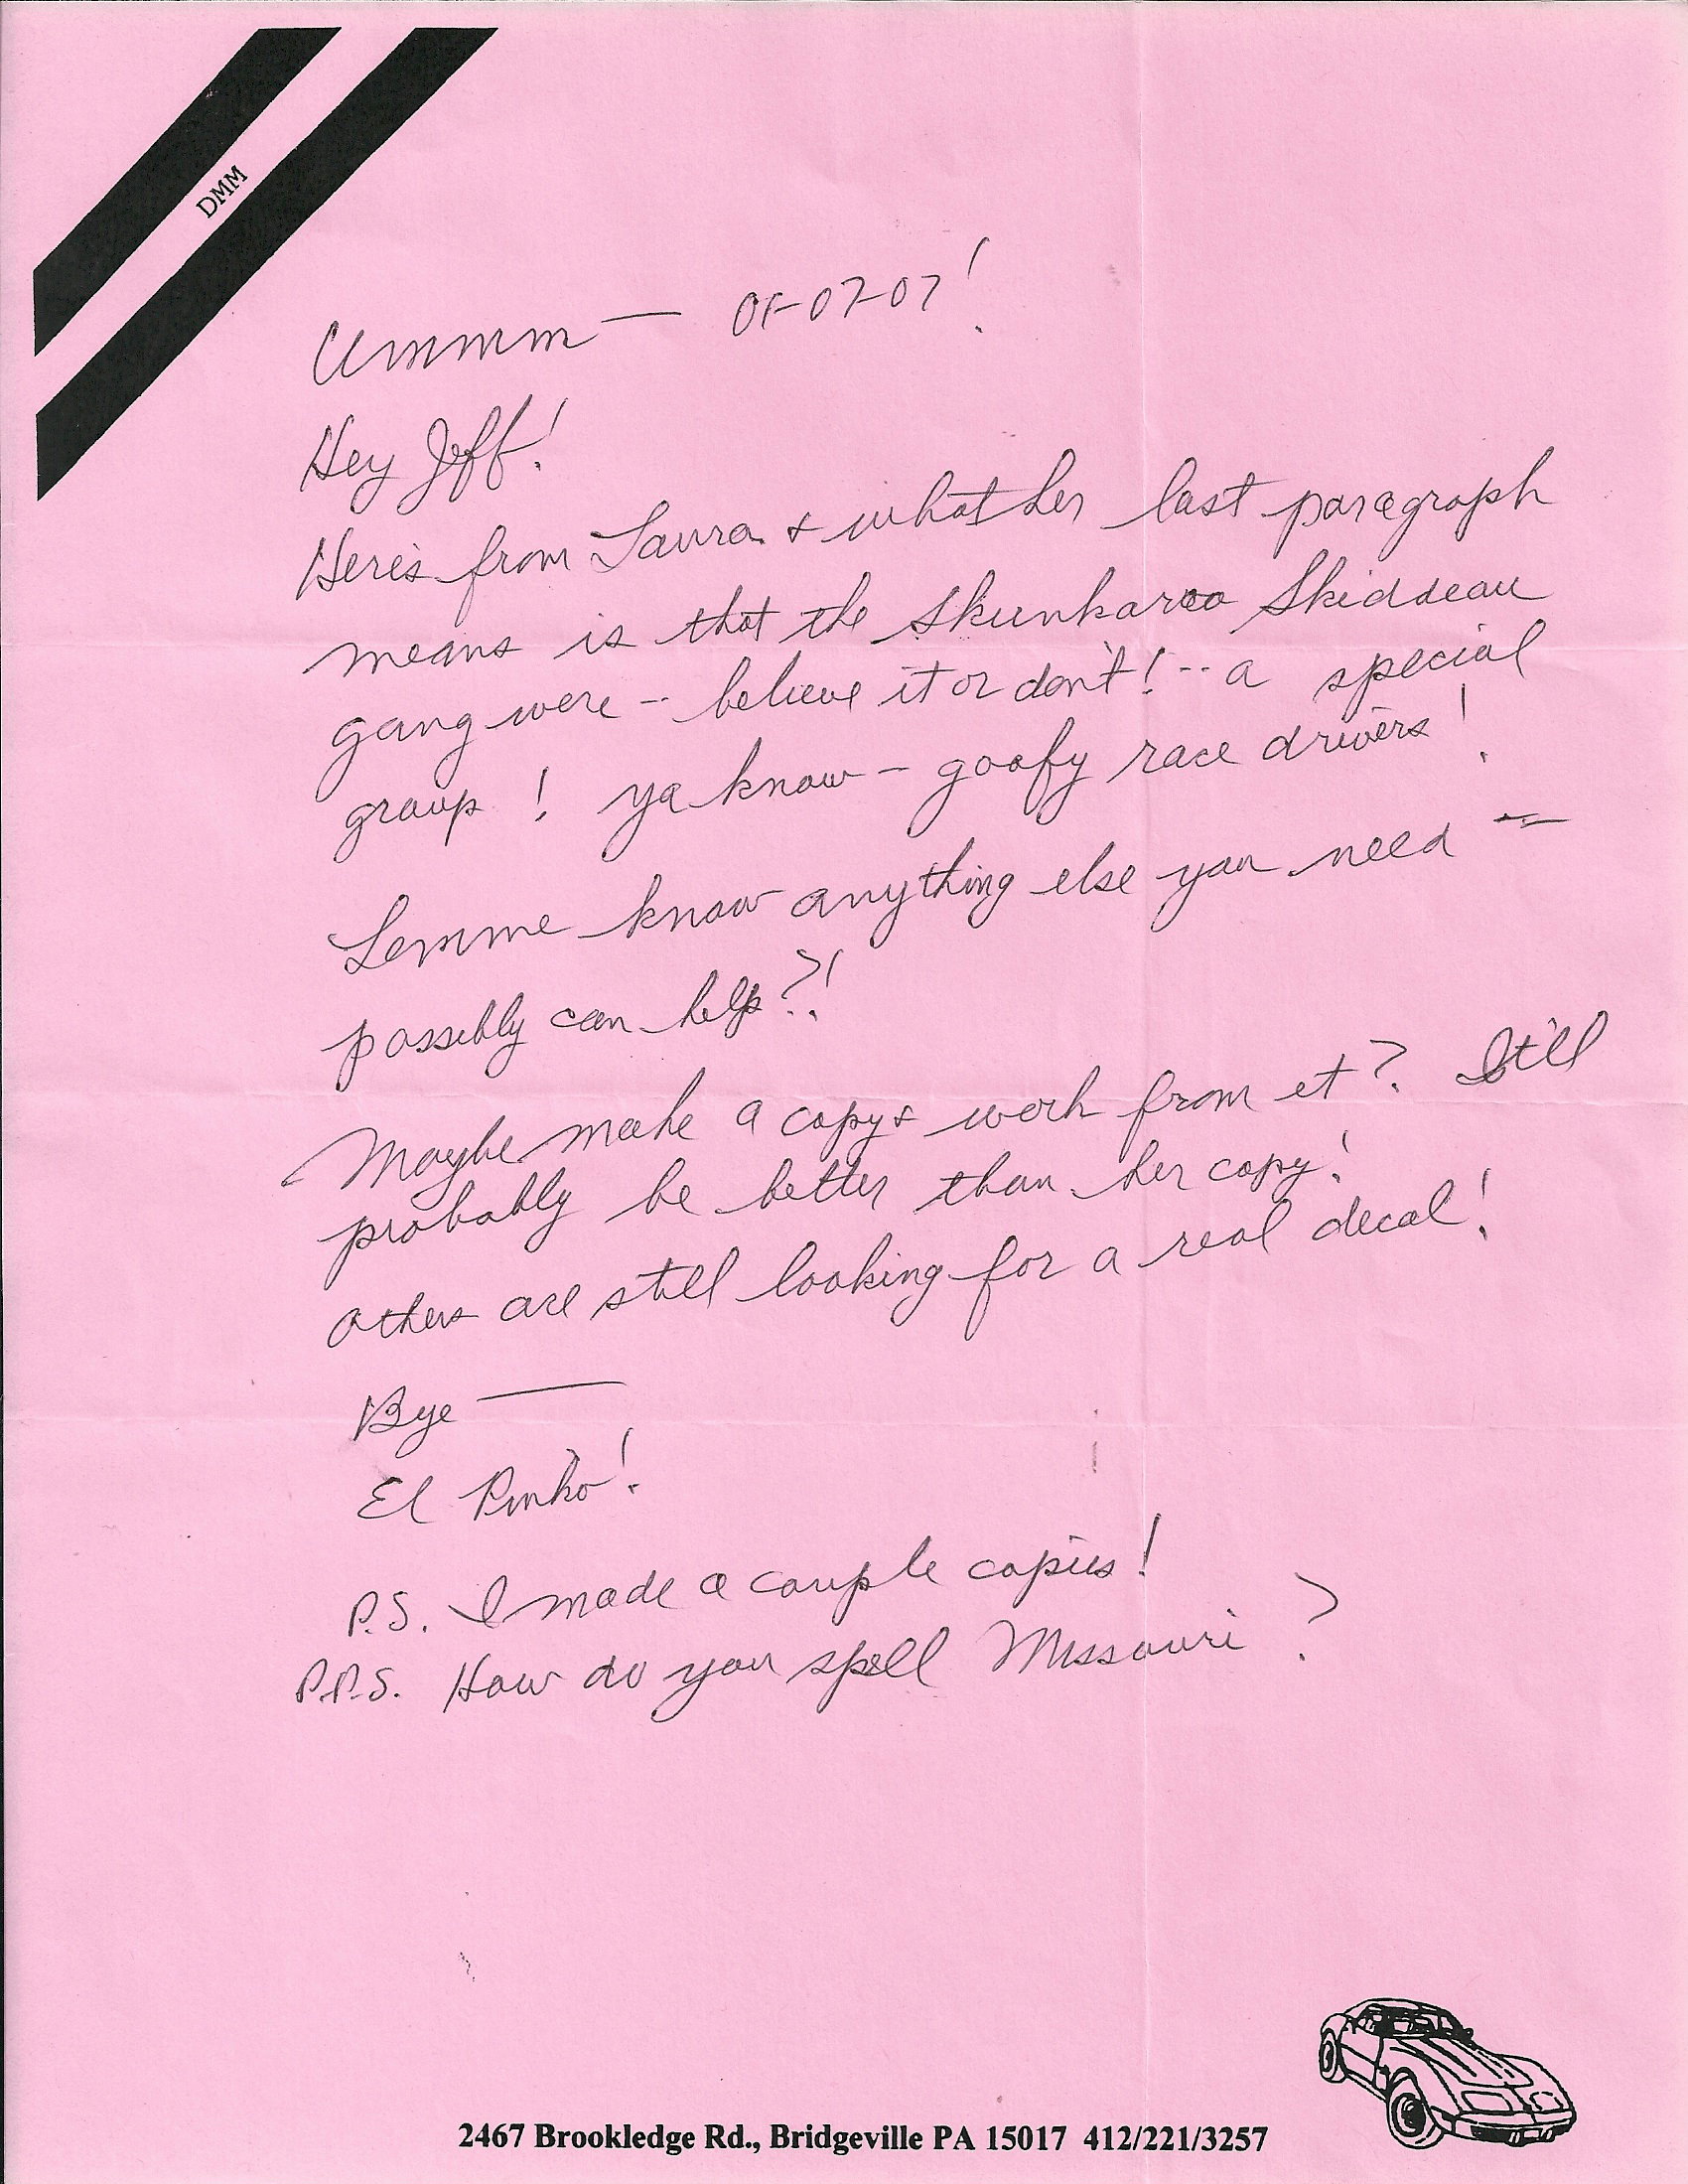 DMM
Ummm — 01-07-07!
Hey Jeff!
Here's from Laura & what her last paragraph
means is that the Skunkaroo Skiddeau
gang were -- believe it or don't! -- a special
group! ya know - goofy race drivers!
Lemme know anything else you need --
possibly can help?!
Maybe make a copy & work from it? It'll
probably be better than her copy!
Others are still looking for a real decal!
Bye —
El Pinko!
P.S. I made a couple copies!
P.P.S. How do you spell Missouri?
2467 Brookledge Rd., Bridgeville PA 15017 412/221/3257